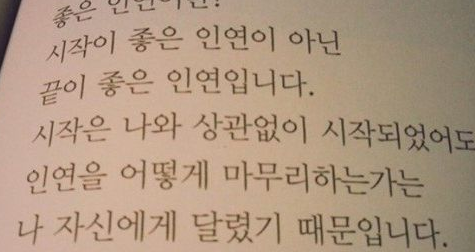 좋은 인연이란?
시작이 좋은 인연이 아닌
끝이 좋은 인연입니다.
시작은 나와 상관없이 시작되었어도
인연을 어떻게 마무리하는가는
나 자신에게 달렸기 때문입니다.